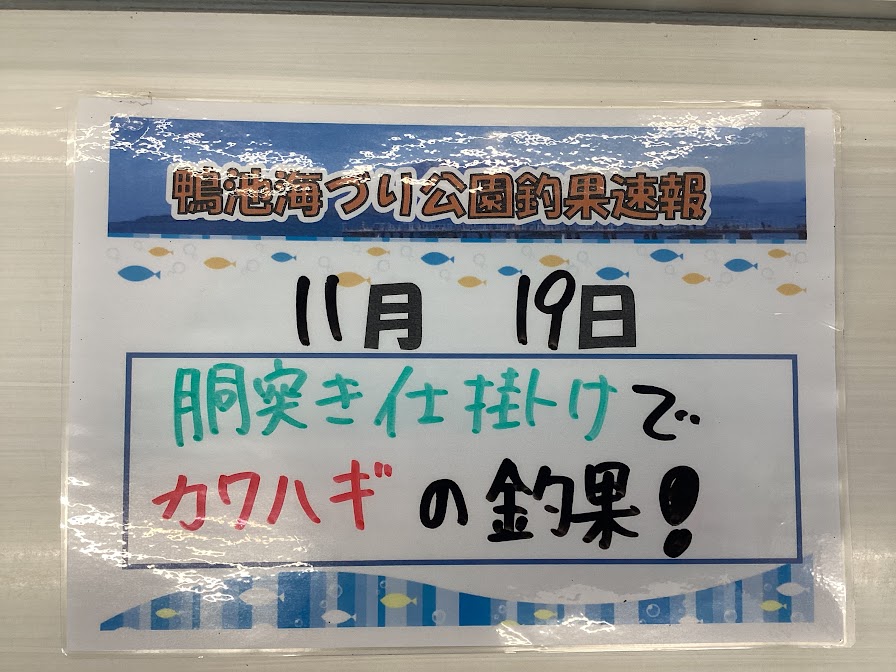 鴨池海づり公園釣果速報
11月 19日
胴突き仕掛けで
カワハギの釣果!